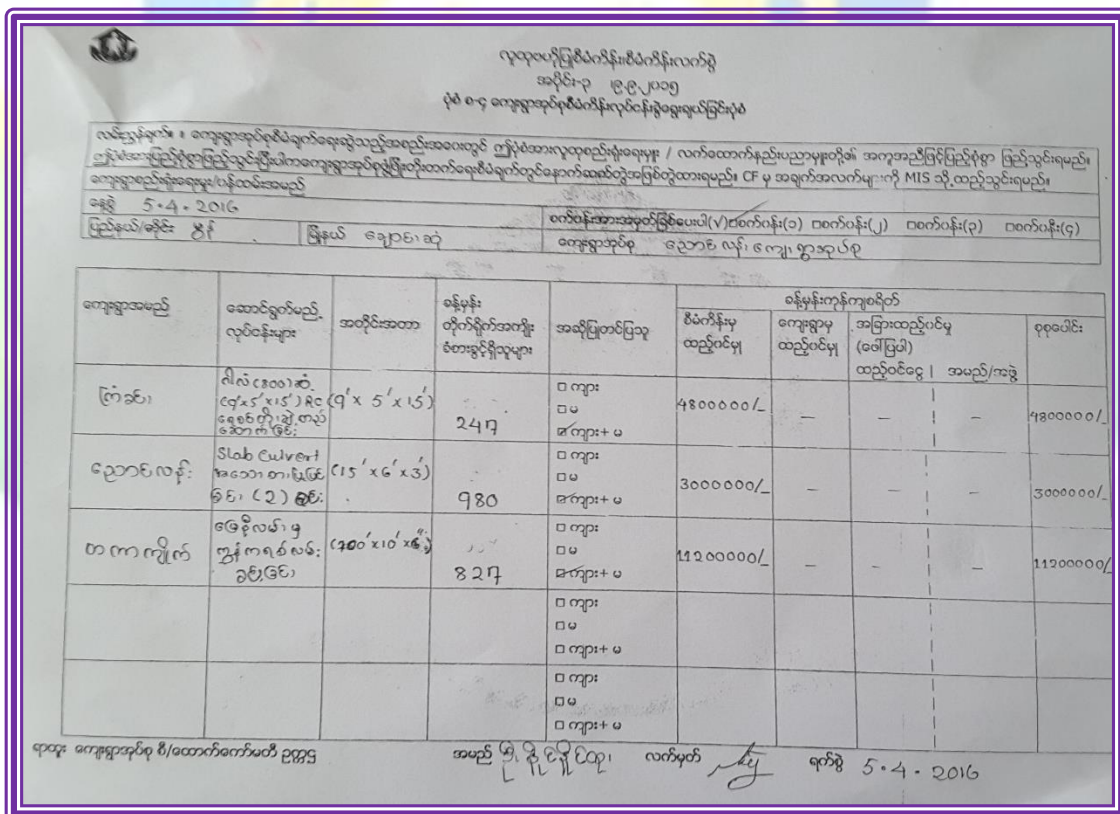 လူထုဗဟိုပြုစီမံကိန်း၊စီမံကိန်းလက်စွဲ
အပိုင်း-၃ ၊၉.၉.၂၀၁၅
ပုံစံ ၈-၄ ကျေးရွာအုပ်စုစီမံကိန်းလုပ်ငန်းခွဲရွေးချယ်ခြင်းပုံစံ
လမ်းညွှန်ချက်။ ။ ကျေးရွာအုပ်စုစီမံချက်ရေးဆွဲသည့်အစည်းအဝေးတွင် ဤပုံစံအားလူထုစည်းရုံးရေးမှူး / လက်ထောက်နည်းပညာမှူးတို့၏ အကူအညီဖြင့်ပြည့်စုံစွာ ဖြည့်သွင်းရမည်။
ဤပုံစံအားပြည့်စုံစွာဖြည့်သွင်းပြီးပါကကျေးရွာအုပ်စုဖွံ့ဖြိုးတိုးတက်ရေးစီမံချက်တွင်နောက်ဆက်တွဲအဖြစ်တွဲထားရမည်။ CF မှ အချက်အလက်များကို MIS သို့ထည့်သွင်းရမည်။
ကျေးရွာစည်းရုံးရေးမှူး/ဝန်ထမ်းအမည်
နေ့စွဲ 5.4.2016
စက်ဝန်းအားအမှတ်ခြစ်ပေးပါ(√) □စက်ဝန်း(၁) □စက်ဝန်း(၂) □စက်ဝန်း(၃) □စက်ဝန်း(၄)
ပြည်နယ်/တိုင်း မွန် မြို့နယ် ချောင်းဆုံ ကျေးရွာအုပ်စု ညောင်လန်းကျေးရွာအုပ်စု
ကျေးရွာအမည်
ဆောင်ရွက်မည့်
လုပ်ငန်းများ
အတိုင်းအတာ
ခန့်မှန်း
တိုက်ရိုက်အကျိုး
ခံစားခွင့်ရှိသူများ
အဆိုပြုတင်ပြသူ
ခန့်မှန်းကုန်ကျစရိတ်
စီမံကိန်းမှ
ထည့်ဝင်မှု
ကျေးရွာမှ
ထည့်ဝင်မှု
အခြားထည့်ဝင်မှု
(ဖော်ပြပါ)
ထည့်ဝင်ငွေ | အမည်/အဖွဲ့
စုစုပေါင်း
ကြံခင်း
(9'x5'x15') RC
(9'x 5'x15')
247
□ ကျား
□ မ
☑ ကျား+ မ
4800000/_
–
–
–
4800000/_
ညောင်လန်း
Slab Culvert
(2) စင်း
(15'x6'x3')
980
□ ကျား
□ မ
☑ ကျား+ မ
3000000/_
–
–
–
3000000/_
တကာကျိုက်
မြေနီလမ်းမှ
ကွန်ကရစ်လမ်း
ခင်းခြင်း
(700'x10'x6")
827
□ ကျား
□ မ
☑ ကျား+ မ
11200000/_
–
–
–
11200000/_
□ ကျား
□ မ
□ ကျား+ မ
□ ကျား
□ မ
□ ကျား+ မ
ရာထူး ကျေးရွာအုပ်စု ဖွံ့/ထောက်ကော်မတီ ဥက္ကဋ္ဌ အမည် လက်မှတ် ရက်စွဲ 5.4.2016